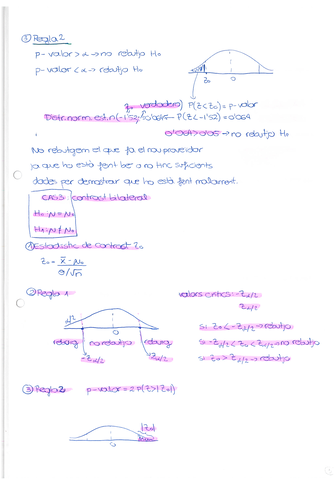 ③ Regla 2
p-valor > α → no rebutjo H₀
p-valor < α → rebutjo H₀
z₀ 0
z₀ verdadero) P(Z<Z₀) = p-valor
Distr.norm.est.n(-1'52; P(Z<-1'52) = 0'064
0'064 > 0'05 → no rebutjo H₀
No rebutgem el que fa el nou proveïdor
ja que ho està fent bé o no tinc suficients
dades per demostrar que ho està fent malament.
CAS 3: contract bilateral
H₀: μ = μ₀
H₁: μ ≠ μ₀
① Estadístic de contrast Z₀
Z₀ = (x̄ - μ₀) / (σ/√n)
② Regla 1
valors crítics: -Zα/2
Zα/2
α/2
0
rebuig no rebutjo rebuig
-Zα/2 Zα/2
si Z₀ < -Zα/2 → rebutjo
si -Zα/2 < Z₀ < Zα/2 → no rebutjo
si Z₀ > Zα/2 → rebutjo
③ Regla 2 p-valor = 2·P(Z>|Z₀|)
|Z₀|
0